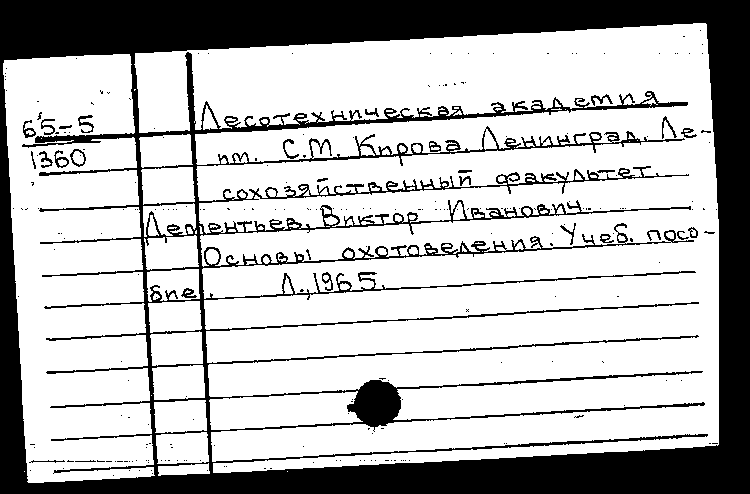 65-5
1360
Лесотехническая академия
им. С.М. Кирова. Ленинград. Ле-
сохозяйственный факультет.
Дементьев, Виктор Иванович.
Основы охотоведения. Учеб. посо-
бие. Л., 1965.